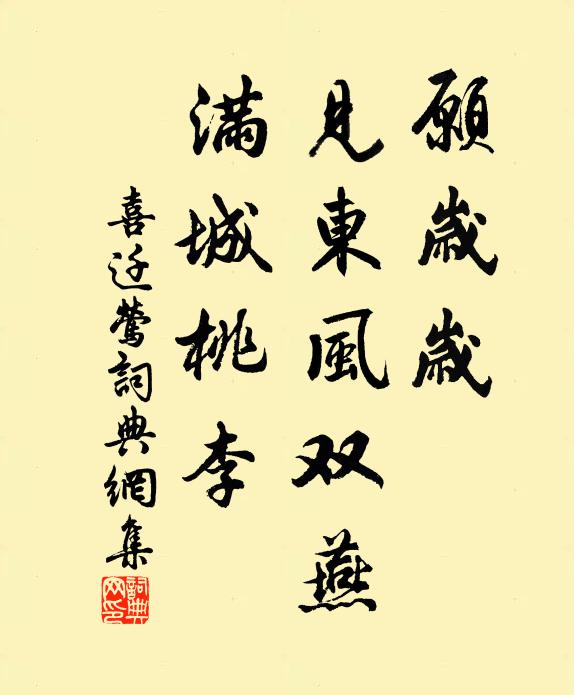 願歲歲
見東風双燕
滿城桃李
喜迁鶯詞典網集
詞典网印